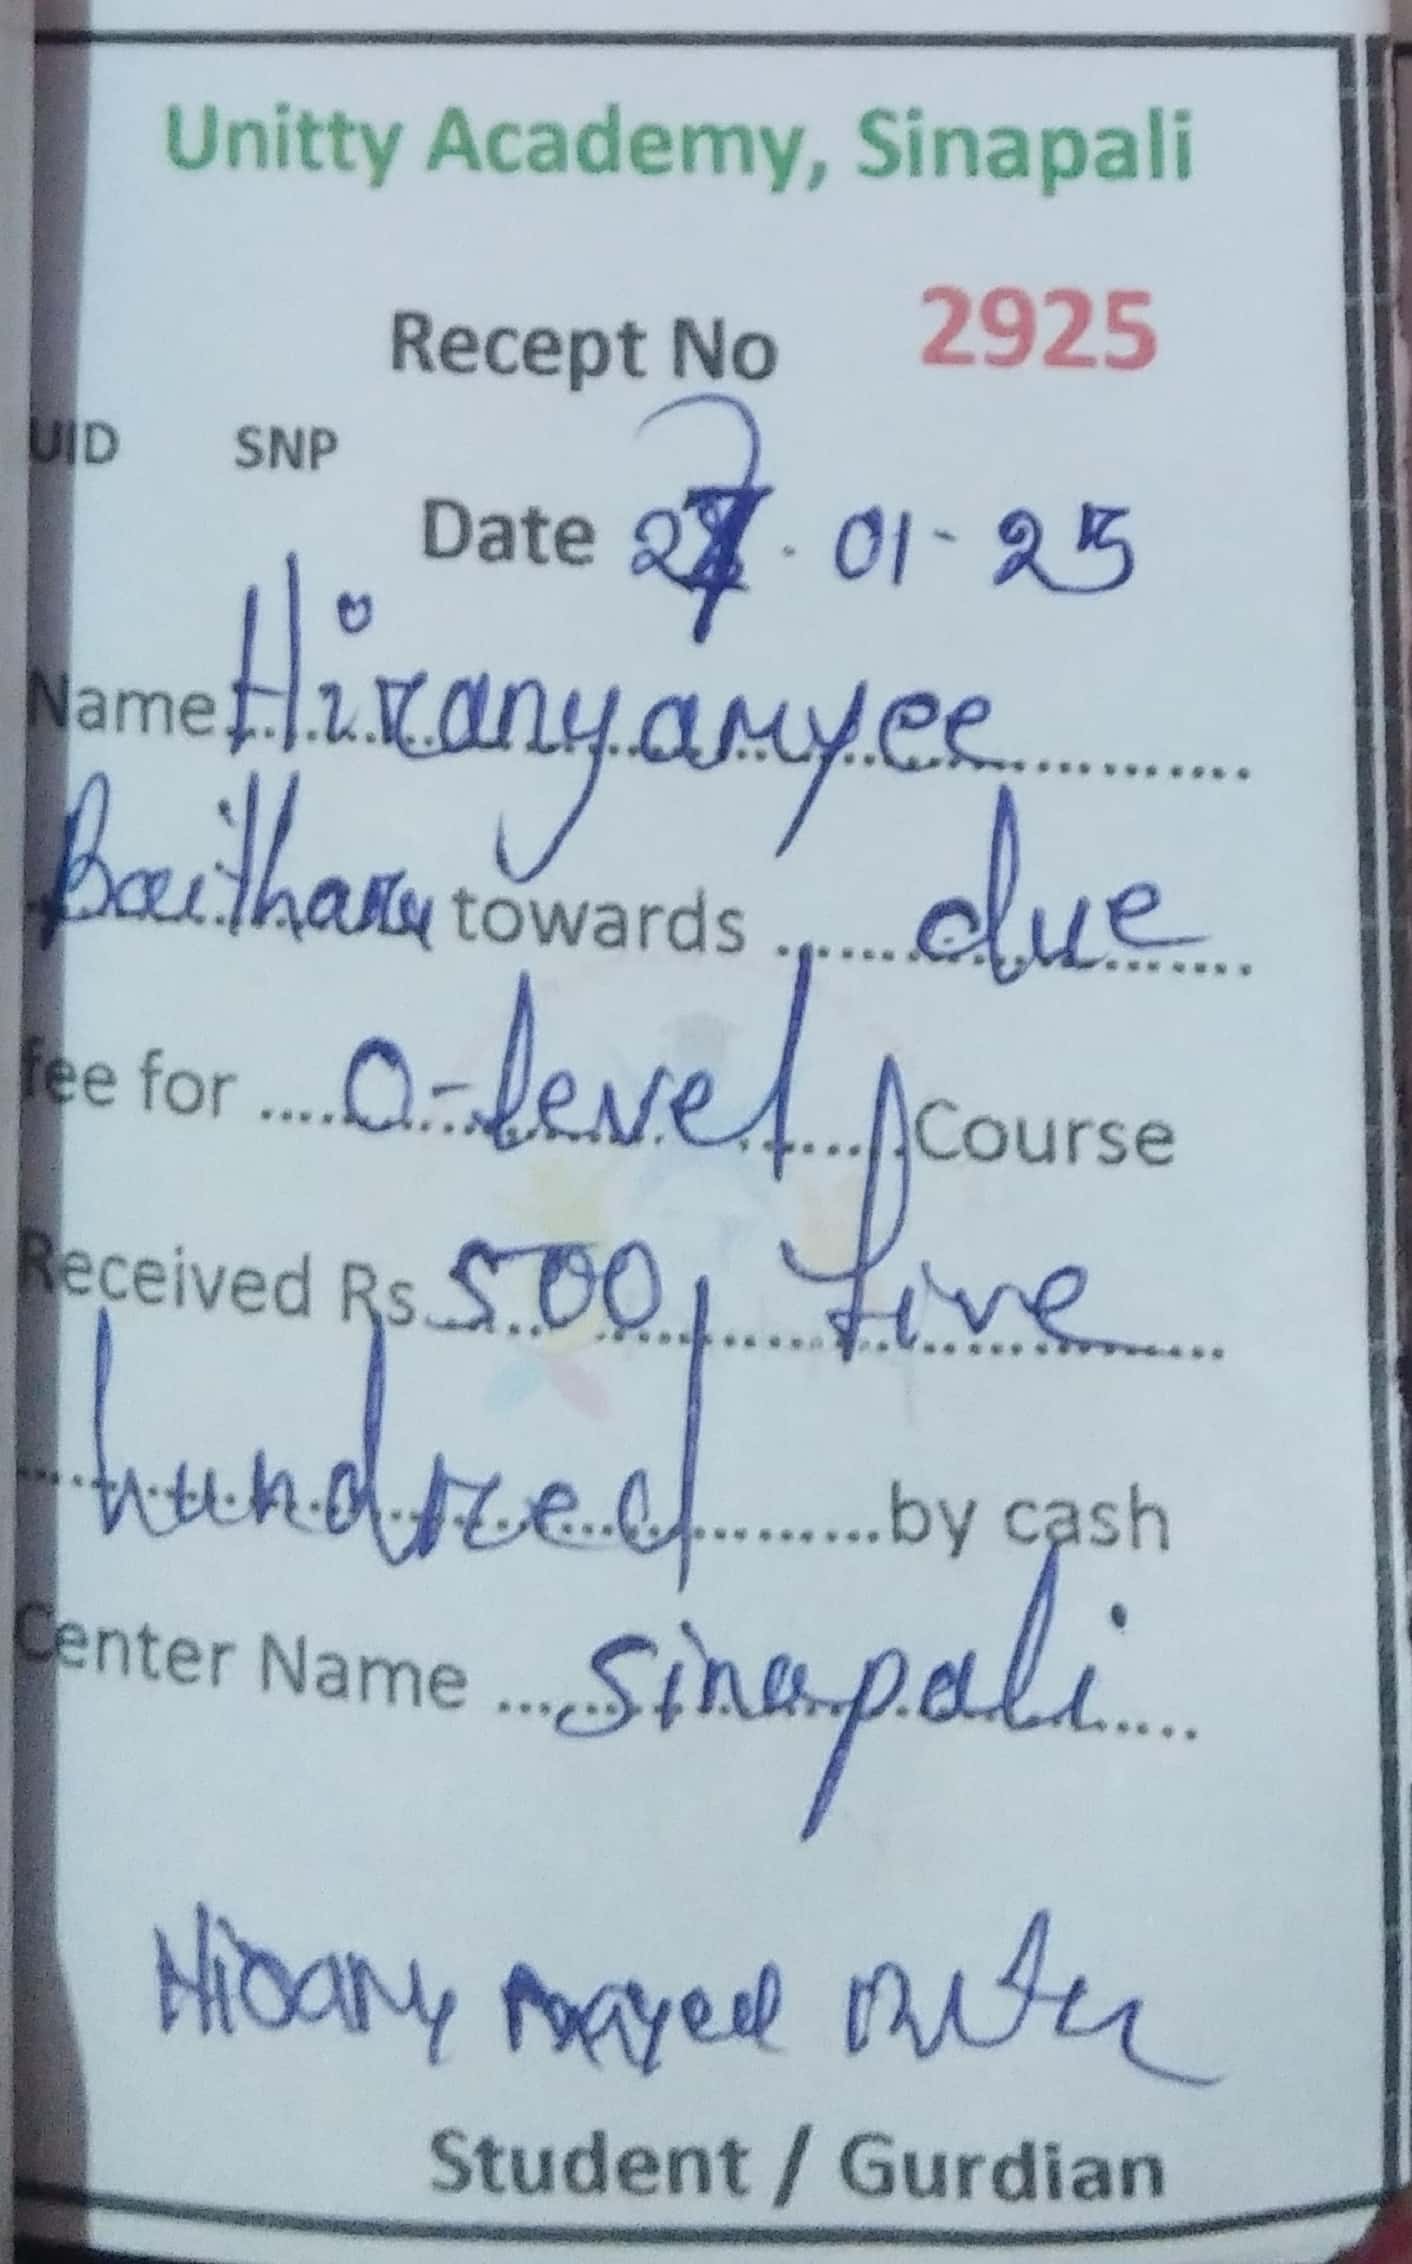 Unitty Academy, Sinapali
Recept No 2925
UID SNP
Date 27-01-25
Name Hiranyamyee
towards due
fee for O-level Course
Received Rs. 500/ five
hundred by cash
Center Name Sinapali
Student / Gurdian